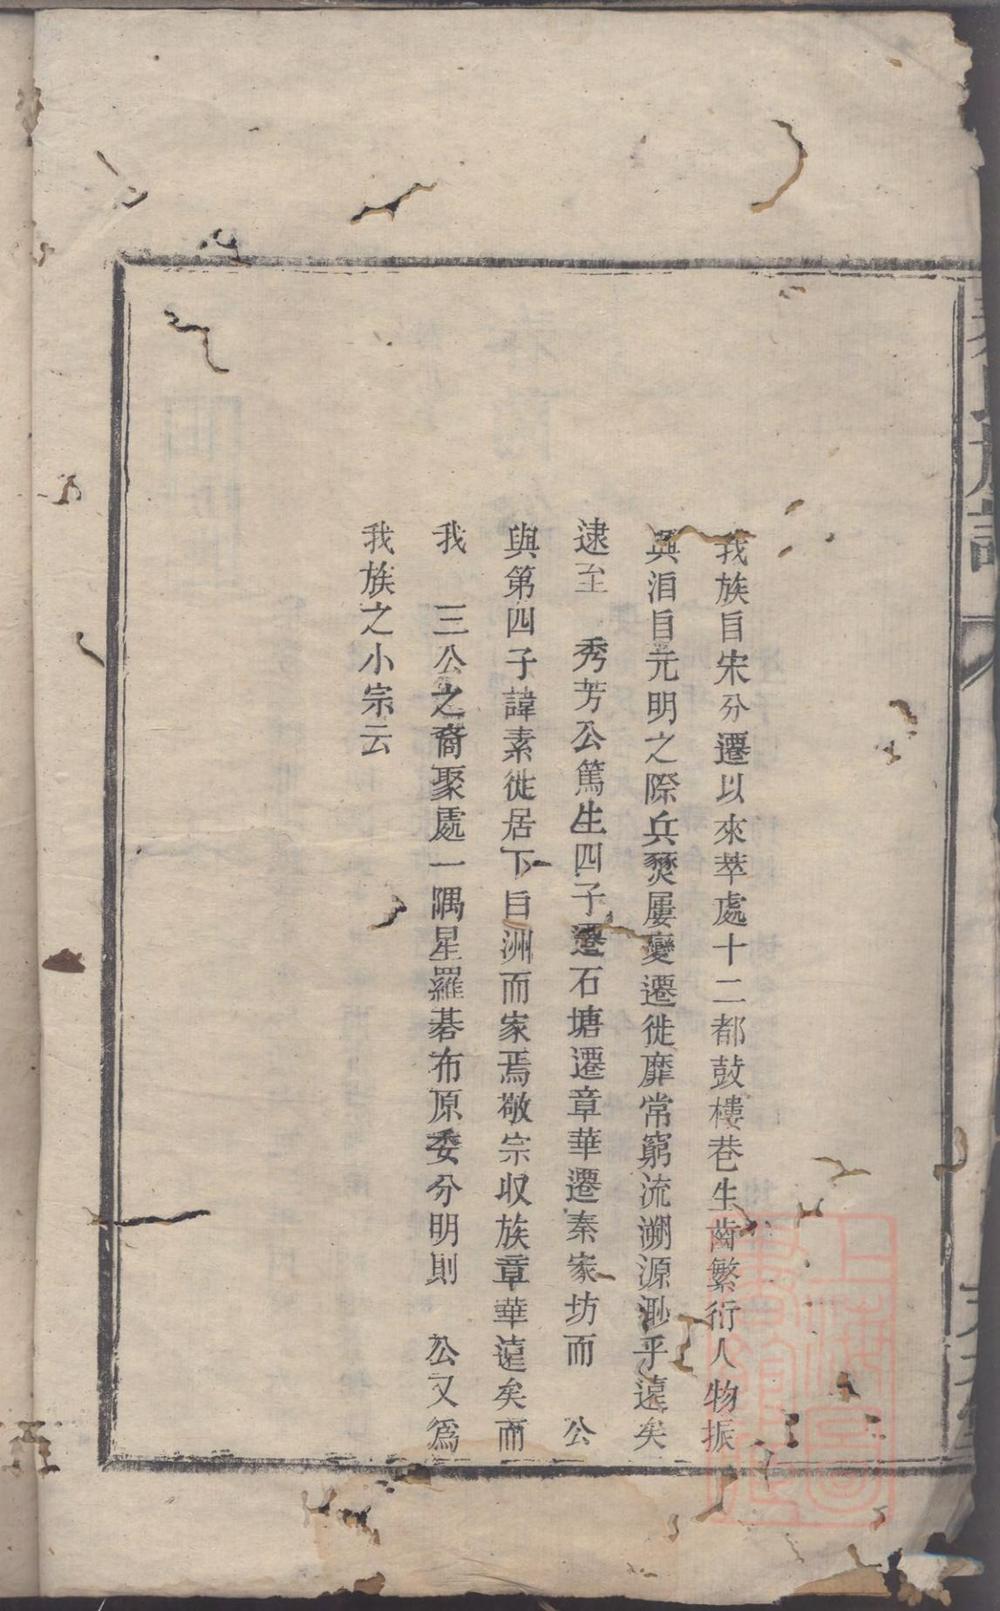 我族自宋分遷以來萃處十二都鼓樓巷生齒繁衍人物振
興洎自元明之際兵燹屢變遷徙靡常窮流溯源渺乎遠矣
逮至 秀芳公篤生四子遷石塘遷章華遷秦家坊而 公
與第四子諱素徙居下白洲而家焉敬宗収族章華遠矣而
我 三公之裔聚處一隅星羅碁布原委分明則 公又爲
我族之小宗云